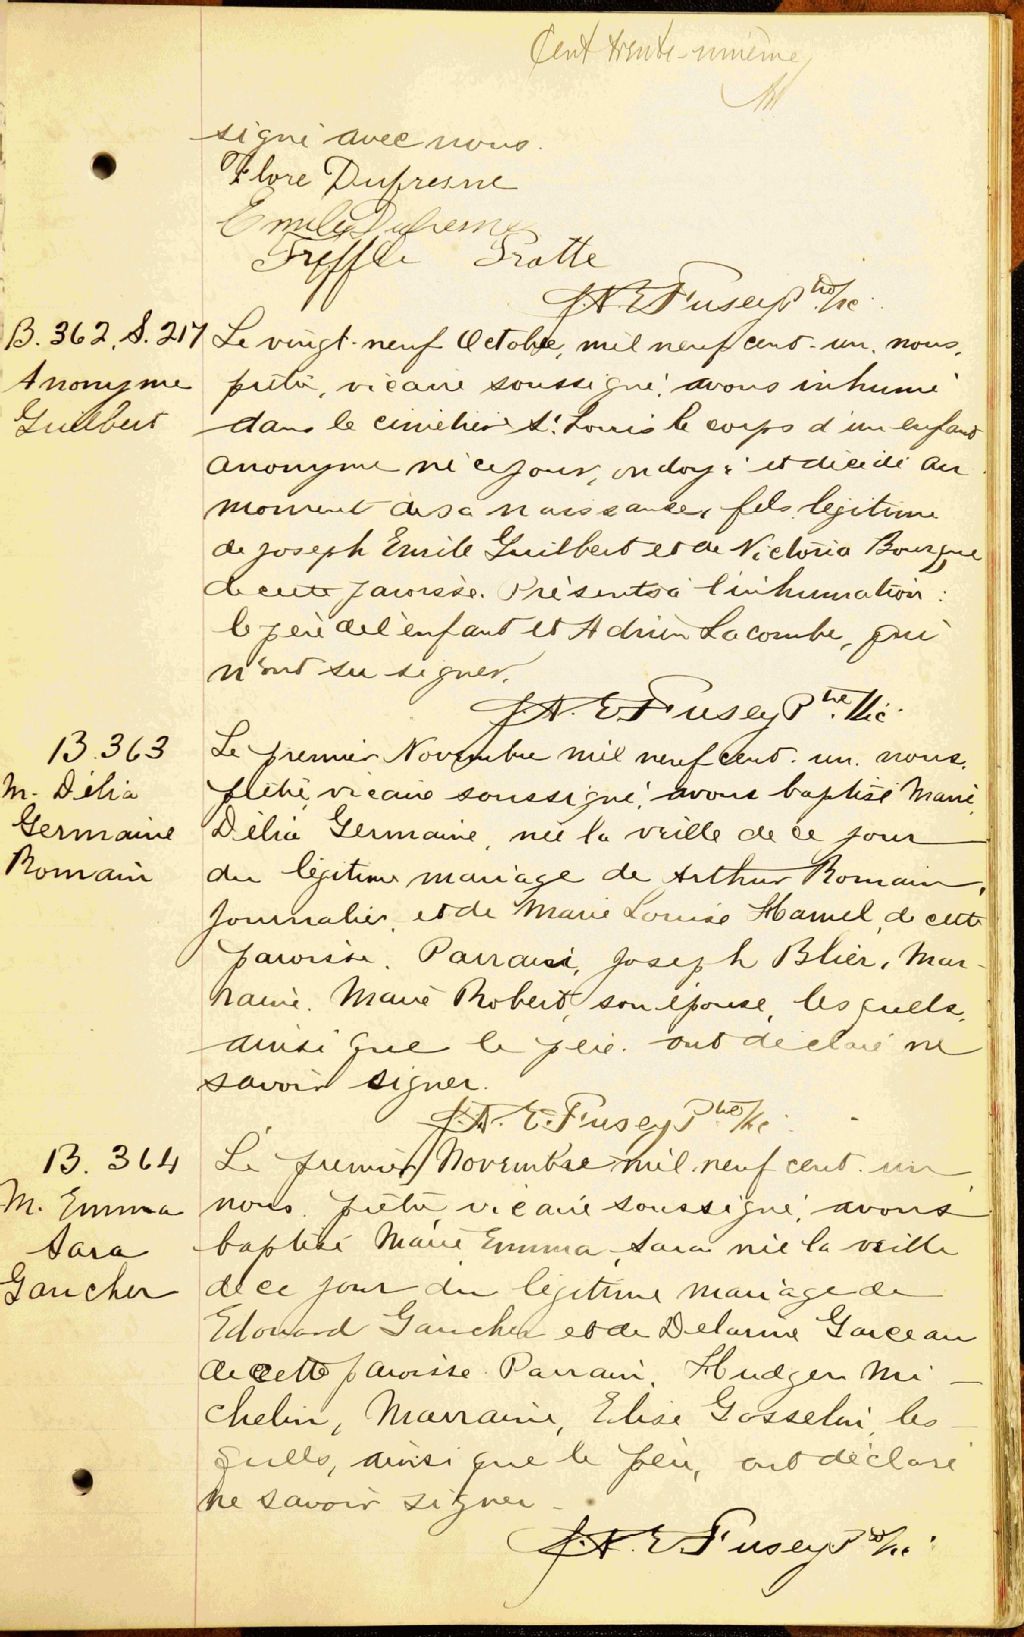 Cent trente-unième
signé avec nous.
Flore Dufresne
Emile Dufresne
Treffle Pratte
J. A. E. Fusey Ptre Vic.
B. 362. S. 217
Anonyme
Guilbert
Le vingt-neuf Octobre, mil neuf cent-un, nous,
prêtre, vicaire soussigné, avons inhumé
dans le cimetière St. Louis le corps d'un enfant
anonyme né ce jour, ondoyé et décédé au
moment de sa naissance, fils légitime
de Joseph Emile Guilbert et de Victoria Bourque
de cette paroisse. Présents à l'inhumation:
le père de l'enfant et Adrien Lacombe, qui
n'ont su signer.
J. A. E. Fusey Ptre. Vic.
B. 363
M. Délia
Germaine
Romain
Le premier Novembre mil neuf cent-un, nous,
prêtre, vicaire soussigné, avons baptisé Marie
Délia Germaine, née la veille de ce jour
du légitime mariage de Arthur Romain,
journalier, et de Marie Louise Hamel, de cette
paroisse. Parrain, Joseph Blier, Mar-
raine, Marie Robert, son épouse, lesquels,
ainsi que le père, ont déclaré ne
savoir signer.
J. A. E. Fusey Ptre Vic.
B. 364
M. Emma
Sara
Gaucher
Le premier Novembre mil neuf cent-un
nous, prêtre vicaire soussigné, avons
baptisé Marie Emma Sara née la veille
de ce jour du légitime mariage de
Edouard Gaucher et de Delarine Garceau
de cette paroisse. Parrain, Hudger Mi-
chelin, Marraine, Elise Gosselin, les-
quels, ainsi que le père, ont déclaré
ne savoir signer-
J. A. E. Fusey Ptre Vic.